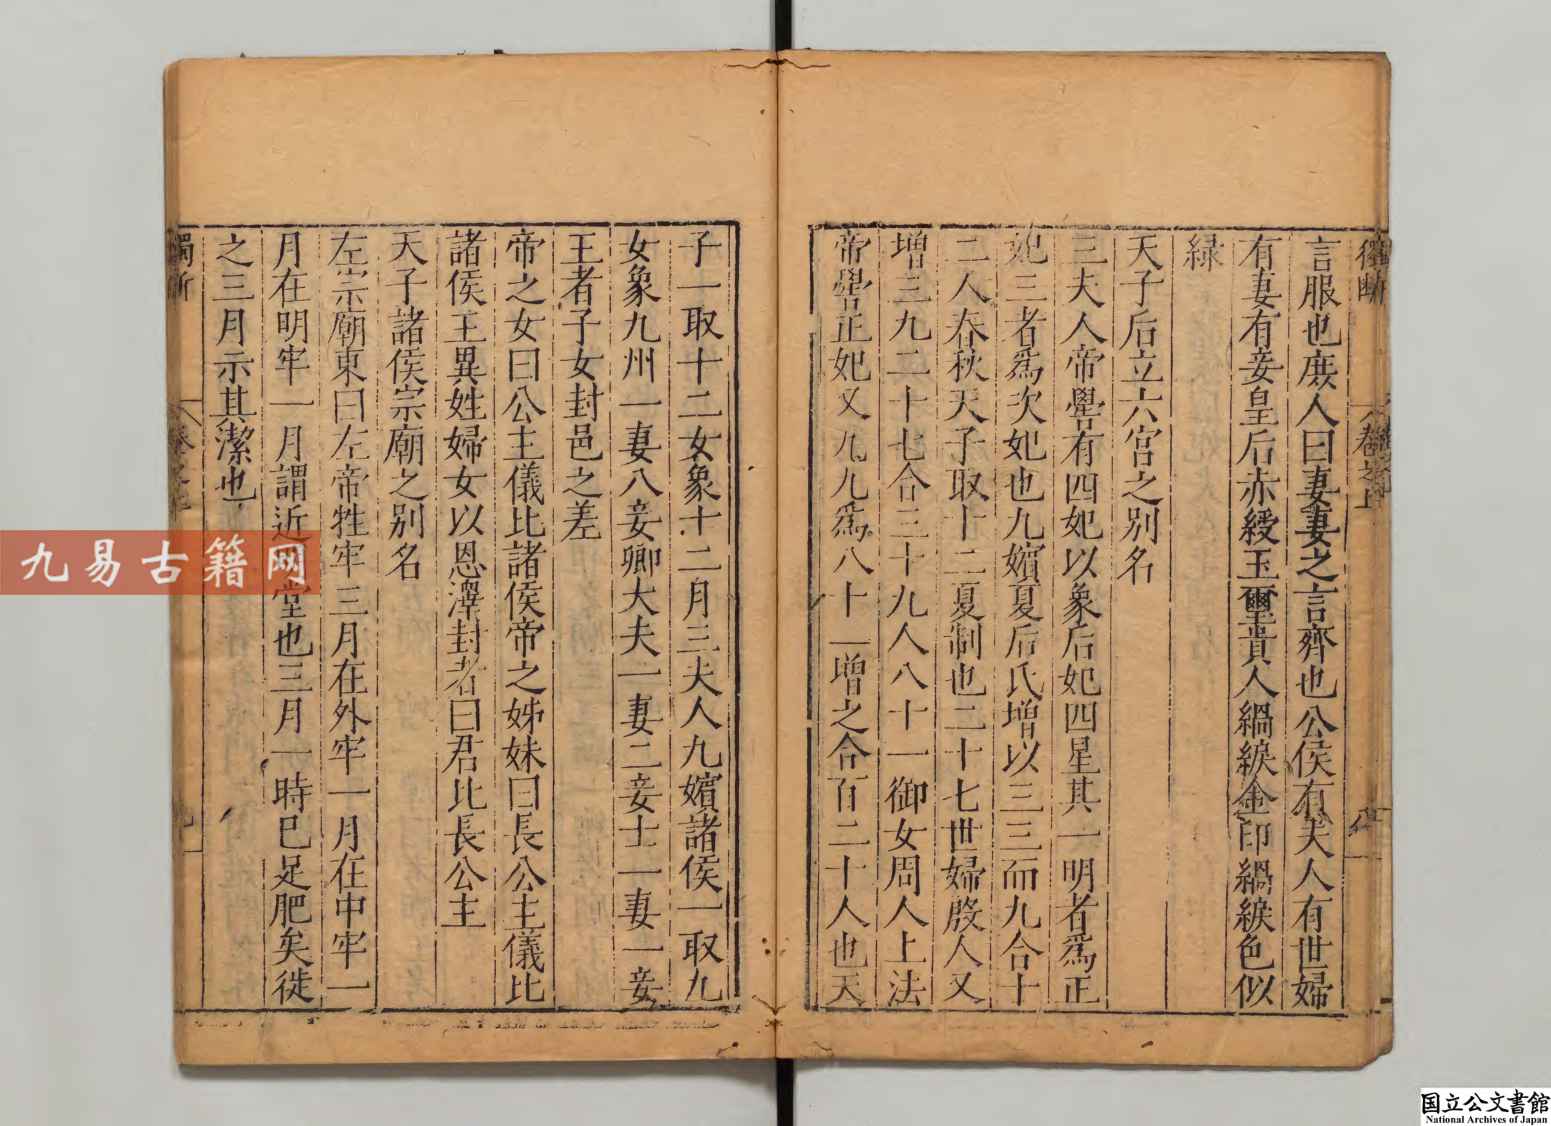 言服也庶人曰妻妻之言齊也公侯有夫人有世婦
有妻有妾皇后赤綬玉璽貴人緺綟金印緺綟色似
緑
天子后立六宮之別名
三夫人帝嚳有四妃以象后妃四星其一明者爲正
妃三者爲次妃也九嬪夏后氏增以三三而九合十
二人春秋天子取十二夏制也二十七世婦殷人又
增三九二十七合三十九人八十一御女周人上法
帝嚳正妃又九九爲八十一增之合百二十人也天
子一取十二女象十二月三夫人九嬪諸侯一取九
女象九州一妻八妾卿大夫一妻二妾士一妻一妾
王者子女封邑之差
帝之女曰公主儀比諸侯帝之姊妹曰長公主儀比
諸侯王異姓婦女以恩澤封者曰君比長公主
天子諸侯宗廟之別名
左宗廟東曰左帝牲牢三月在外牢一月在中牢一
月在明牢一月謂近堂也三月一時已足肥矣徙
之三月示其潔也
獨斷
卷之上
九易古籍网
国立公文書館
National Archives of Japan